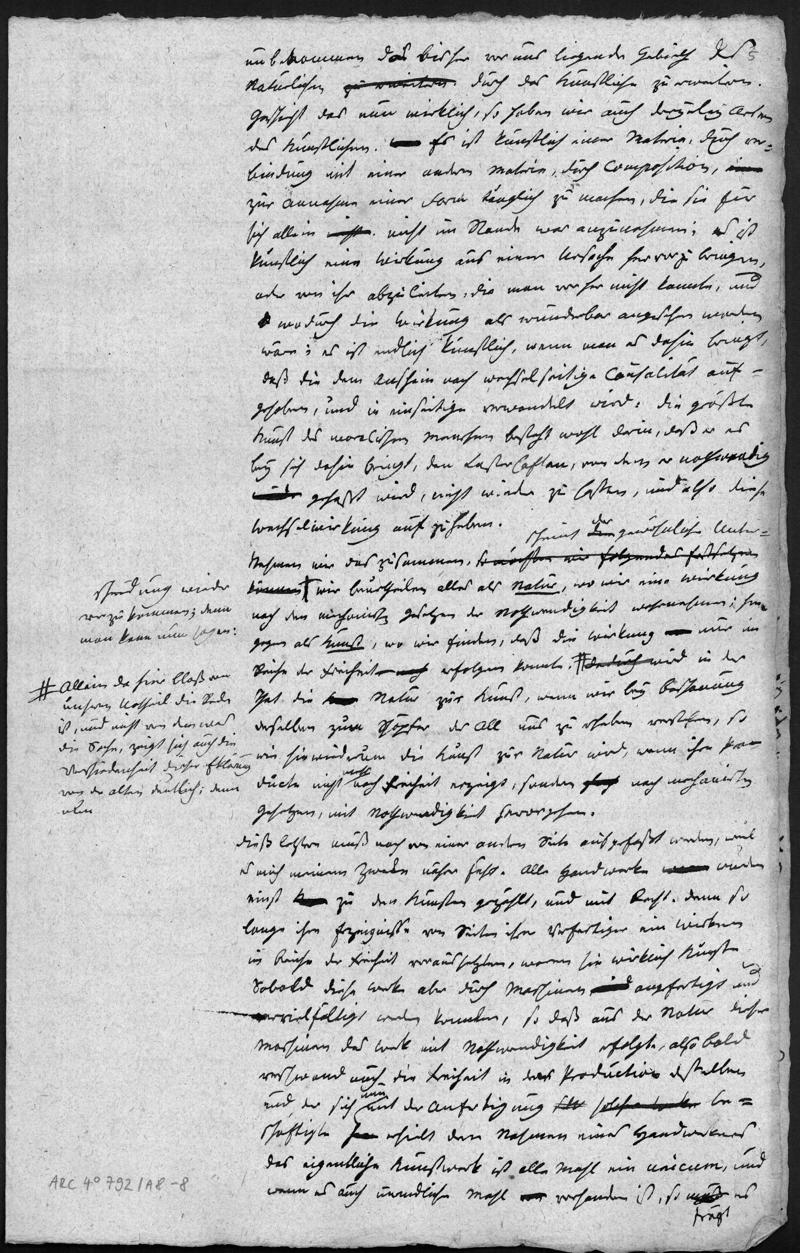 unbekommen das bisher vor uns liegende Gebieth des
Natürlichen zu erweitern durch das Künstliche zu erweitern.
Geschieht das nun wirklich, so haben wir auch dreyerley Arten
des Künstlichen. Es ist künstlich einer Materie, durch ver=
bindung mit einer andern Materie, durch Composition,
zur Annahme einer Form tauglich zu machen, die sie für
sich allein nicht im Stande war anzunehmen; es ist
künstlich eine Wirkung aus einer Ursache hervorzubringen,
oder von ihr abzuleiten, die man vorher nicht kannte, und
wodurch die Wirkung als wunderbar angesehen worden
wäre; es ist endlich künstlich, wenn man es dahin bringt,
daß die dem Anschein nach wechselseitige Causalität auf=
gehoben, und in einseitige verwandelt wird: die größte
Kunst des moralischen Menschen besteht wohl darin, daß er es
bey sich dahin bringt, den Lasterhaften, von dem er nothwendig
gehaßt wird, nicht wieder zu hassen, und also diese
Wechselwirkung aufzuheben.
scheint der gewöhnliche Unter=
Nehmen wir das zusammen, so möchten wir folgendes festsetzen
können wir beurtheilen alles als Natur, wo wir eine Wirkung
nach den mechanischen Gesetzen der Nothwendigkeit wahrnehmen; hin=
gegen als Kunst, wo wir finden, daß die Wirkung nur im
Reiche der Freiheit erfolgen konnte. # Dadurch wird in der
That die Natur zur Kunst, wenn wir bey Beschauung
derselben zum Schöpfer des All uns zu erheben verstehen, so
wie hinwiederum die Kunst zur Natur wird, wenn ihre Pro
ducte nicht nach Freiheit erzeigt, sondern nach mechanischen
Gesetzen, mit Nothwendigkeit hervorgehen.
scheidung wieder
vorzukommen; denn
man kann nun sagen:
# Allein da hier bloß von
unserm Urtheil die Rede
ist, und nicht von dem was
die Sache, zeigt sich auch die
Verschiedenheit dieser Erklärung
von der alten deutlich; denn
nun
dieß letztere muß noch von einer andern Seite aufgefaßt werden, weil
es mich meinem Zwecke näher führt. Alle Handwerke wurden
einst zu den Künsten gezählt, und mit Recht. denn so
lange ihre Erzeugnisse von Seiten ihrer Verfertiger ein Wirken
im Reiche der Freiheit voraussetzten, waren sie wirklich Künste
Sobald diese Werke aber durch Maschinen angefertigt und
vervielfältigt werden konnten, so daß aus der Natur dieser
Maschinen das Werk mit Nothwendigkeit erfolgte, alsobald
verschwand auch die Freiheit in der Production desselben
und der sich nun mit der Anfertigung solcher Werke be=
schäftigte erhielt den Nahmen eines Handwerkers
das eigentliche Kunstwerk ist alle Mahl ein unicum, und
wenn es auch unendliche Mahl vorhanden ist, so muß es
trägt
ARC 4° 792/A8-8